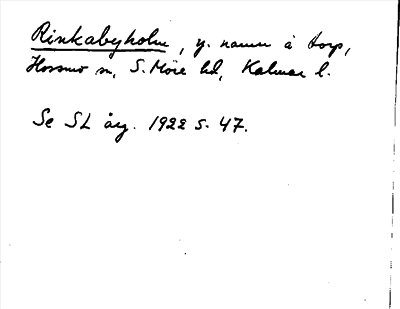 Rinkabyholm, y. namn å torp,
Hossmo sn, S. Möre hd, Kalmar l.
Se SL årg. 1922 s. 47.